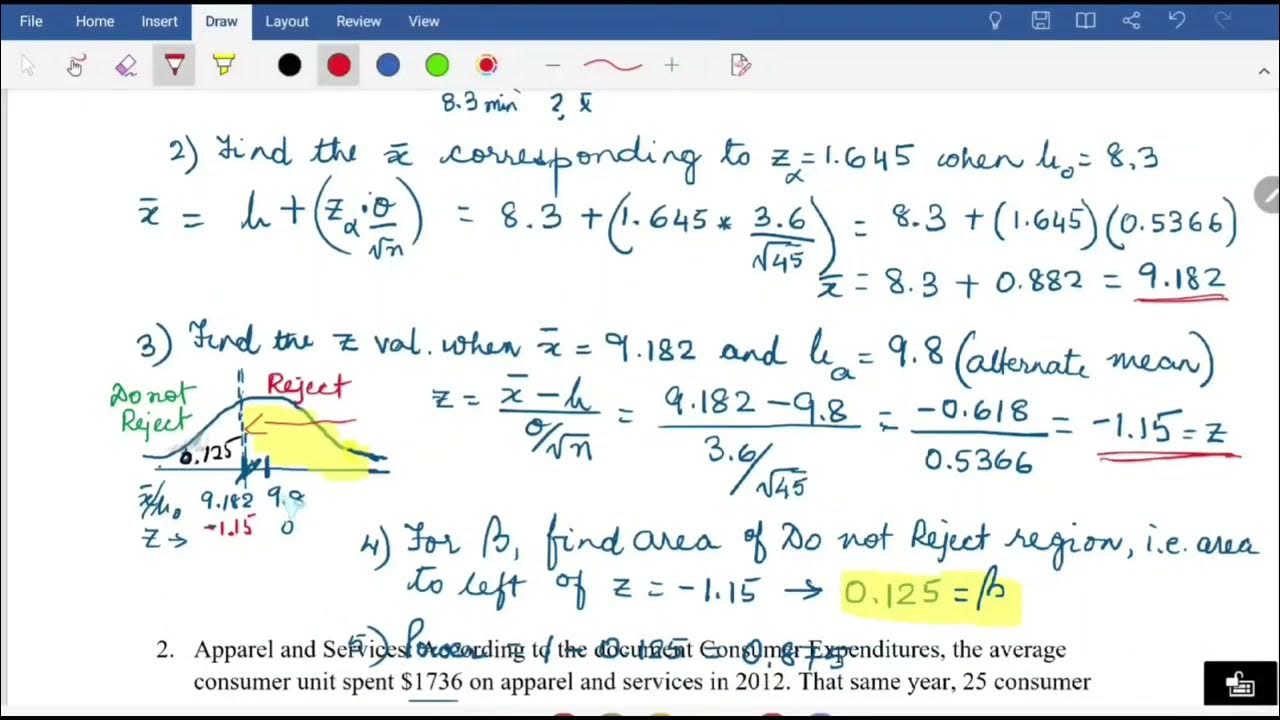 File Home Insert Draw Layout Review View
8.3 min ?, x̄
2) Find the x̄ corresponding to z_α = 1.645 when μ₀ = 8.3
x̄ = μ + (z_α · σ/√n) = 8.3 + (1.645 * 3.6/√45) = 8.3 + (1.645)(0.5366)
x̄ = 8.3 + 0.882 = 9.182
3) Find the z val. when x̄ = 9.182 and μ_a = 9.8 (alternate mean)
Do not Reject
Reject
z = x̄ - μ / σ/√n = 9.182 - 9.8 / 3.6/√45 = -0.618 / 0.5366 = -1.15 = z
0.125
x̄/μ₀ 9.182 9.8
z → -1.15 0
4) For β, find area of Do not Reject region, i.e. area
to left of z = -1.15 → 0.125 = β
5) Power = 1 - 0.125 = 0.875
2. Apparel and Services According to the document Consumer Expenditures, the average
consumer unit spent $1736 on apparel and services in 2012. That same year, 25 consumer